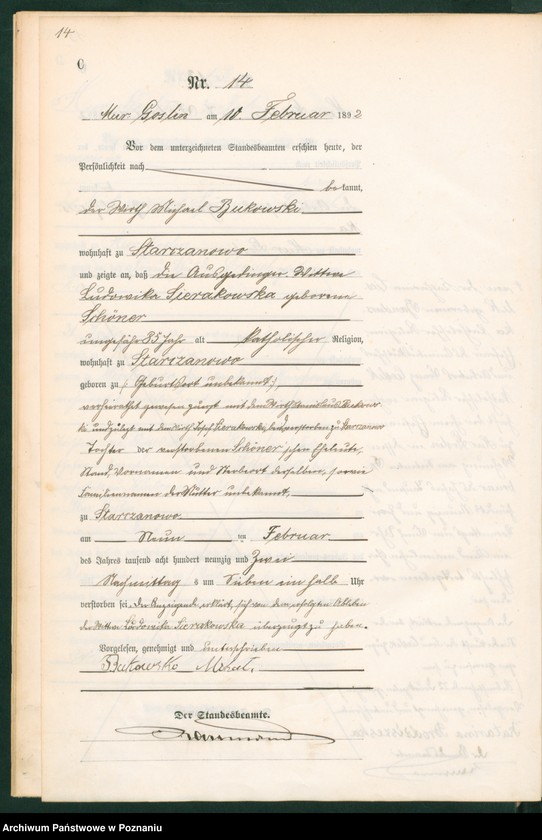 14
Nr. 14
Mur. Goslin am 10. Februar 1892
Vor dem unterzeichneten Standesbeamten erschien heute, der
Persönlichkeit nach
bekannt,
der Wirth Michael Bukowski
wohnhaft zu Starczanowo
und zeigte an, daß die Ausgedinger Wittwe
Ludowika Sierakowska geborene
Schöner
ungefähr 85 Jahr alt katholischer Religion,
wohnhaft zu Starczanowo
geboren zu /: Geburtsort unbekannt :/,
verheirathet gewesen zuerst mit dem Wirth Stanislaus Bukow-
ski und zuletzt mit dem Wirth Josef Sierakowski, beide verstorben zu Starczanowo
Tochter der verstorbenen Schöner'schen Eheleute,
Stand, Vornamen und Sterbeort derselben, sowie
Familiennamen der Mutter unbekannt,
zu Starczanowo
am Neun ten Februar
des Jahres tausend acht hundert neunzig und Zwei
Nachmittag s um sieben ein halb Uhr
verstorben sei. Der Anzeigende erklärt, sich von dem erfolgten Ableben
der Wittwe Ludowika Sierakowska überzeugt zu haben.
Vorgelesen, genehmigt und unterschrieben
Bukowsko
Der Standesbeamte.
Archiwum Państwowe w Poznaniu